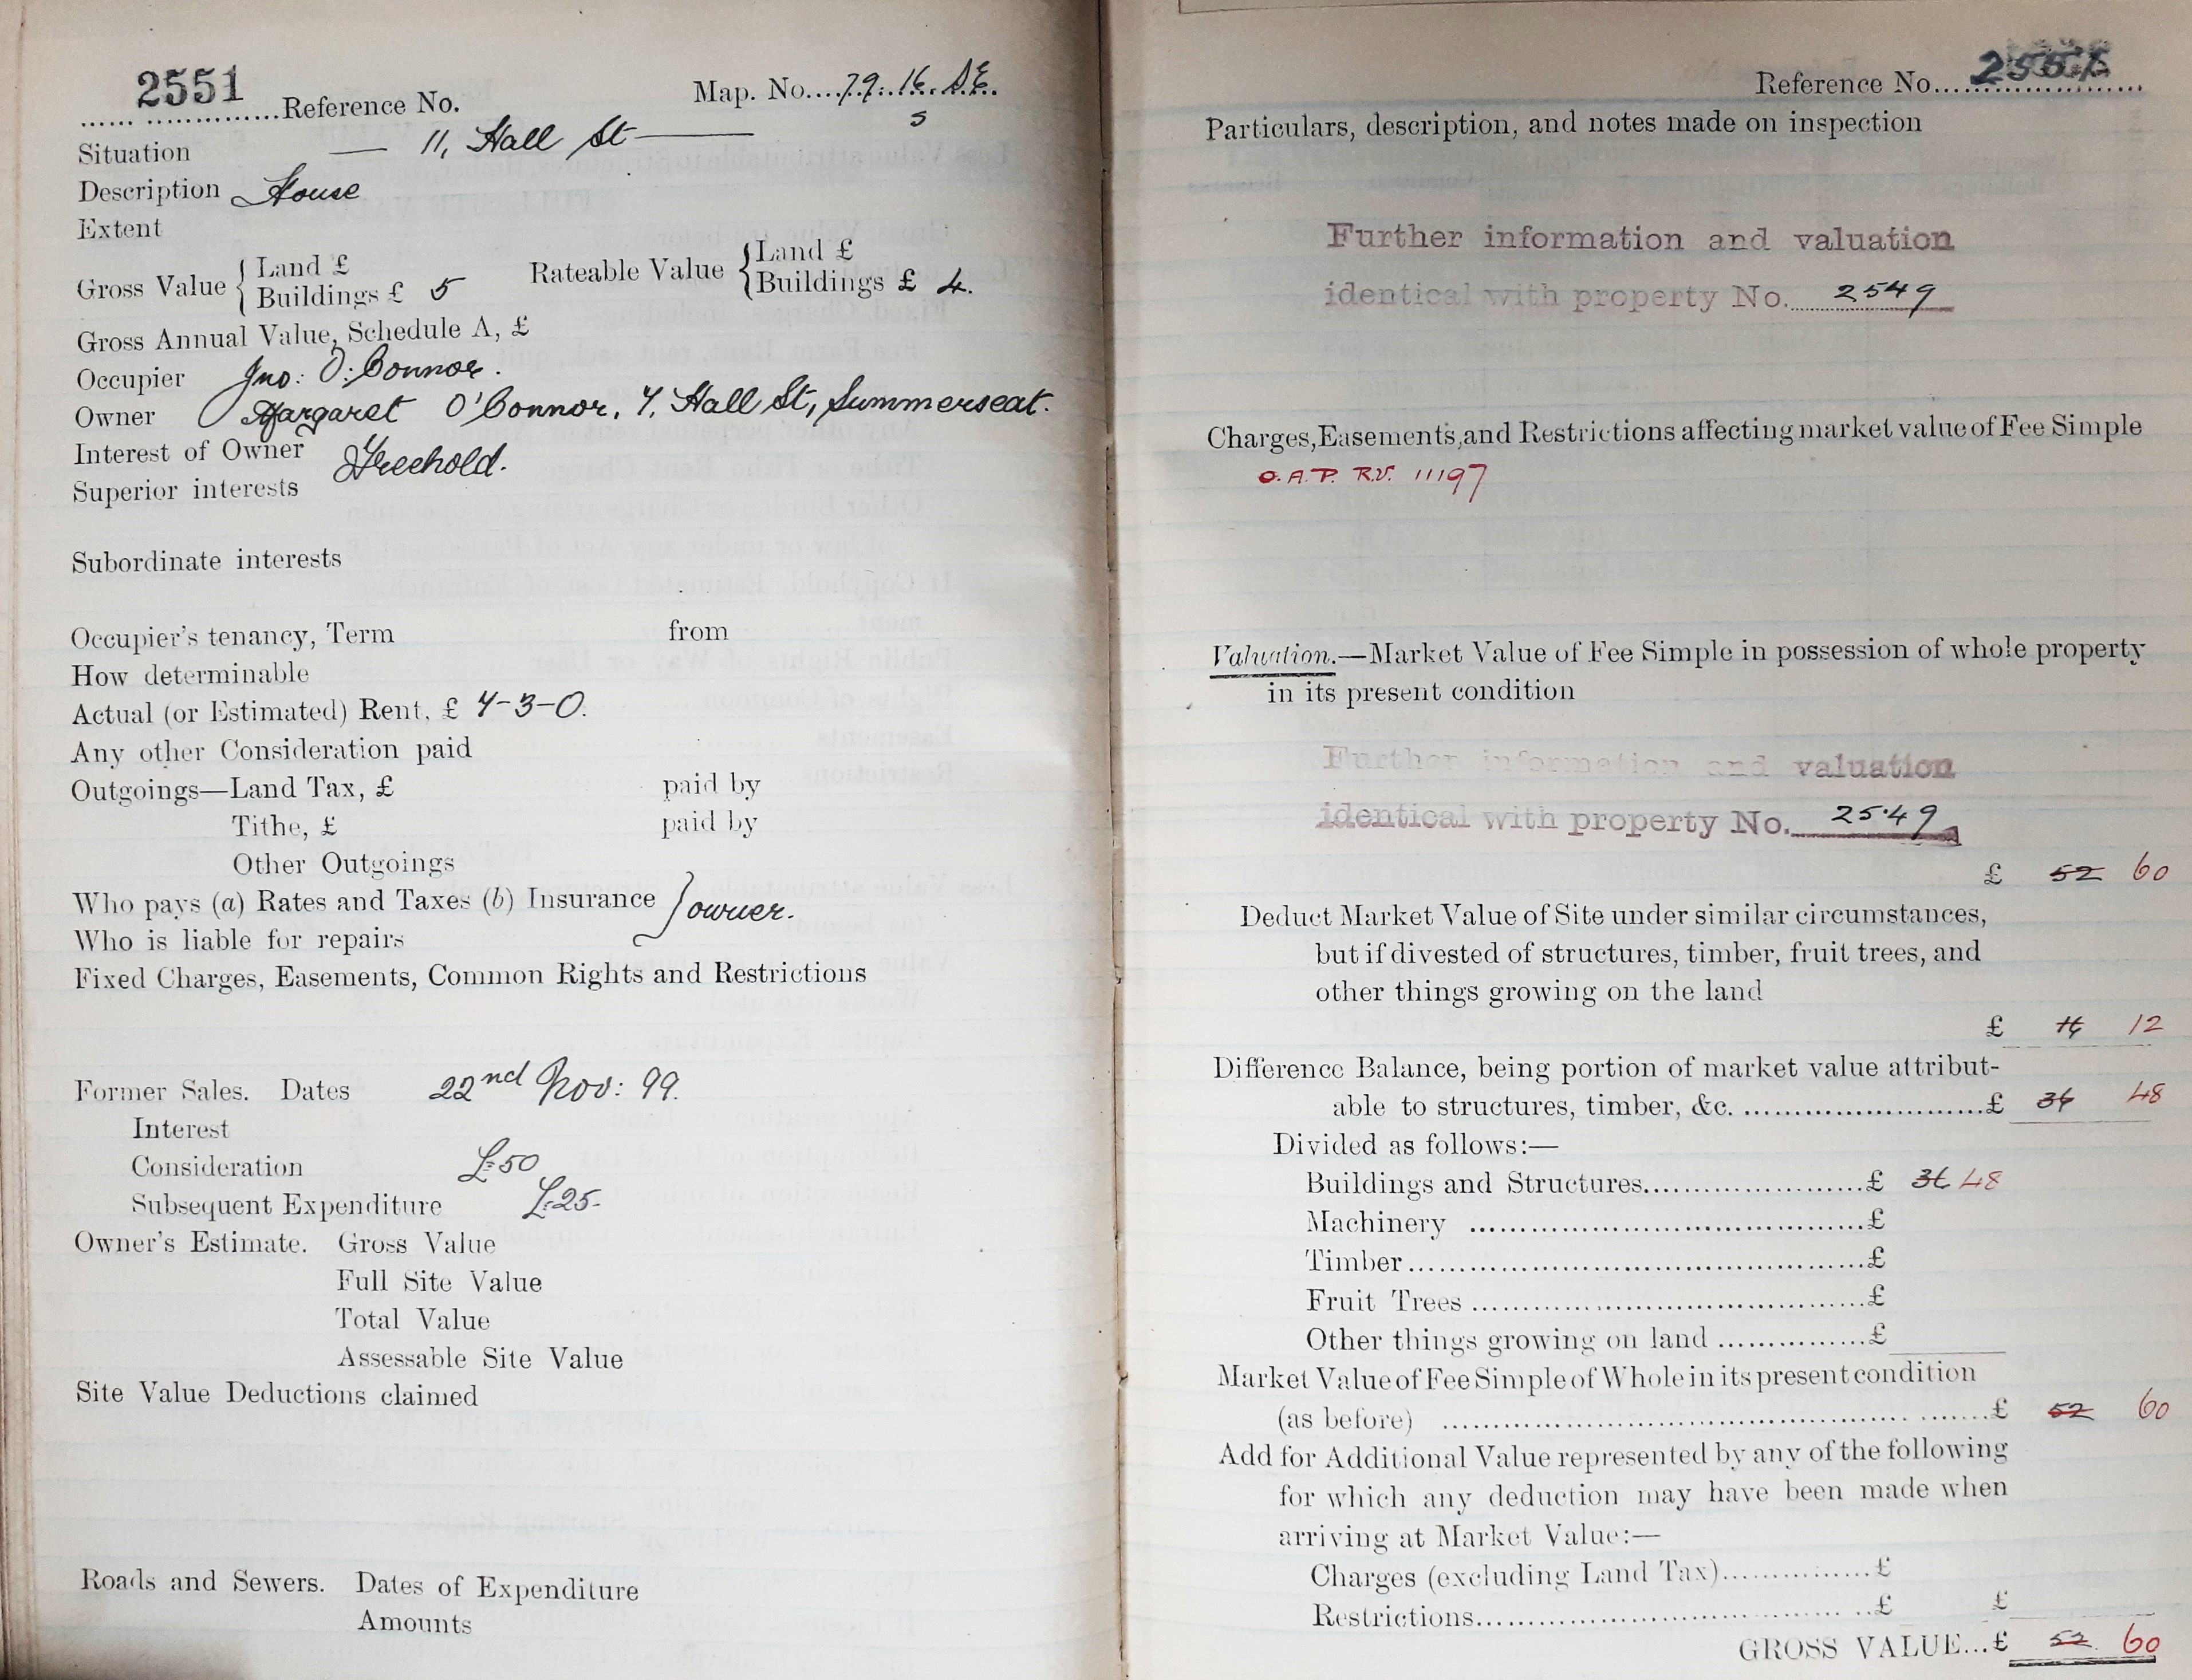 2551 Reference No. Map. No. 79. 16. S.E.
s
Situation — 11, Hall St —
Description House
Extent
Gross Value { Land £
Buildings £ 5
Rateable Value { Land £
Buildings £ 4.
Gross Annual Value, Schedule A, £
Occupier Jno: O'Connor.
Owner Margaret O'Connor, 7, Hall St, Summerseat.
Interest of Owner Freehold.
Superior interests
Subordinate interests
Occupier's tenancy, Term from
How determinable
Actual (or Estimated) Rent, £ 7-3-0.
Any other Consideration paid
Outgoings—Land Tax, £ paid by
Tithe, £ paid by
Other Outgoings
Who pays (a) Rates and Taxes (b) Insurance } owner.
Who is liable for repairs
Fixed Charges, Easements, Common Rights and Restrictions
Former Sales. Dates 22nd Nov: 99.
Interest
Consideration £50
Subsequent Expenditure £25-
Owner's Estimate. Gross Value
Full Site Value
Total Value
Assessable Site Value
Site Value Deductions claimed
Roads and Sewers. Dates of Expenditure
Amounts
Reference No. 2551
Particulars, description, and notes made on inspection
Further information and valuation
identical with property No. 2549
Charges, Easements, and Restrictions affecting market value of Fee Simple
O.A.P. R.V. 11197
Valuation.—Market Value of Fee Simple in possession of whole property
in its present condition
Further information and valuation
identical with property No. 2549
£ 52 60
Deduct Market Value of Site under similar circumstances,
but if divested of structures, timber, fruit trees, and
other things growing on the land
£ 16 12
Difference Balance, being portion of market value attribut-
able to structures, timber, &c. £ 36 48
Divided as follows:—
Buildings and Structures £ 36 48
Machinery £
Timber £
Fruit Trees £
Other things growing on land £
Market Value of Fee Simple of Whole in its present condition
(as before) £ 52 60
Add for Additional Value represented by any of the following
for which any deduction may have been made when
arriving at Market Value:—
Charges (excluding Land Tax) £
Restrictions £ £
GROSS VALUE... £ 52 60